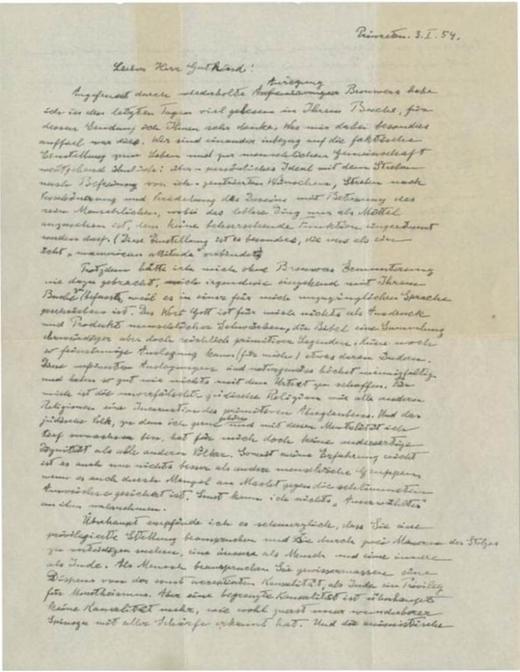 Princeton. 3. I. 54.
Lieber Herr Gutkind!
Angefeuert durch wiederholte Anregung Brouwers habe
ich in den letzten Tagen viel gelesen in Ihrem Buche, für
dessen Sendung ich Ihnen sehr danke. Was mir dabei besonders
auffiel war dies. Wir sind einander inbezug auf die faktische
Einstellung zum Leben und zur menschlichen Gemeinschaft
weitgehend ähnlich: über-persönliches Ideal mit dem Streben
nach Befreiung von ich-zentrierten Wünschen, Streben nach
Verschönerung und Veredelung des Daseins mit Betonung des
rein Menschlichen, wobei das leblose Ding nur als Mittel
anzusehen ist, dem keine beherrschende Funktion eingeräumt
werden darf. (Diese Einstellung ist es besonders, die uns als ein
echt "unamerican attitude" verbindet)
Trotzdem hätte ich mich ohne Brouwers Ermunterung
nie dazu gebracht, mich irgendwie eingehend mit Ihrem
Buche zu befassen, weil es in einer für mich unzugänglichen Sprache
geschrieben ist. Das Wort Gott ist für mich nichts als Ausdruck
und Produkt menschlicher Schwächen, die Bibel eine Sammlung
ehrwürdiger aber doch reichlich primitiver Legenden. Keine noch
so feinsinnige Auslegung kann (für mich) etwas daran ändern.
Diese verfeinerten Auslegungen sind naturgemäss höchst mannigfaltig
und haben so gut wie nichts mit dem Urtext zu schaffen. Für
mich ist die unverfälschte jüdische Religion wie alle anderen
Religionen eine Incarnation des primitiven Aberglaubens. Und das
jüdische Volk, zu dem ich gerne gehöre und mit dessen Mentalität ich
tief verwachsen bin, hat für mich doch keine andersartige
Dignität als alle anderen Völker. Soweit meine Erfahrung reicht
ist es auch um nichts besser als andere menschliche Gruppen
wenn es auch durch Mangel an Macht gegen die schlimmsten
Auswüchse gesichert ist. Sonst kann ich nichts "Auserwähltes"
an ihm wahrnehmen.
Überhaupt empfinde ich es schmerzlich, dass Sie eine
privilegierte Stellung beanspruchen und sie durch zwei Mauern des Stolzes
zu verteidigen suchen, eine äussere als Mensch und eine innere
als Jude. Als Mensch beanspruchen Sie gewissermassen einen
Dispens von der sonst acceptierten Kausalität, als Jude ein Privileg
für Monotheismus. Aber eine begrenzte Kausalität ist überhaupt
keine Kausalität mehr, wie wohl zuerst unser wunderbarer
Spinoza mit aller Schärfe erkannt hat. Und die animistische